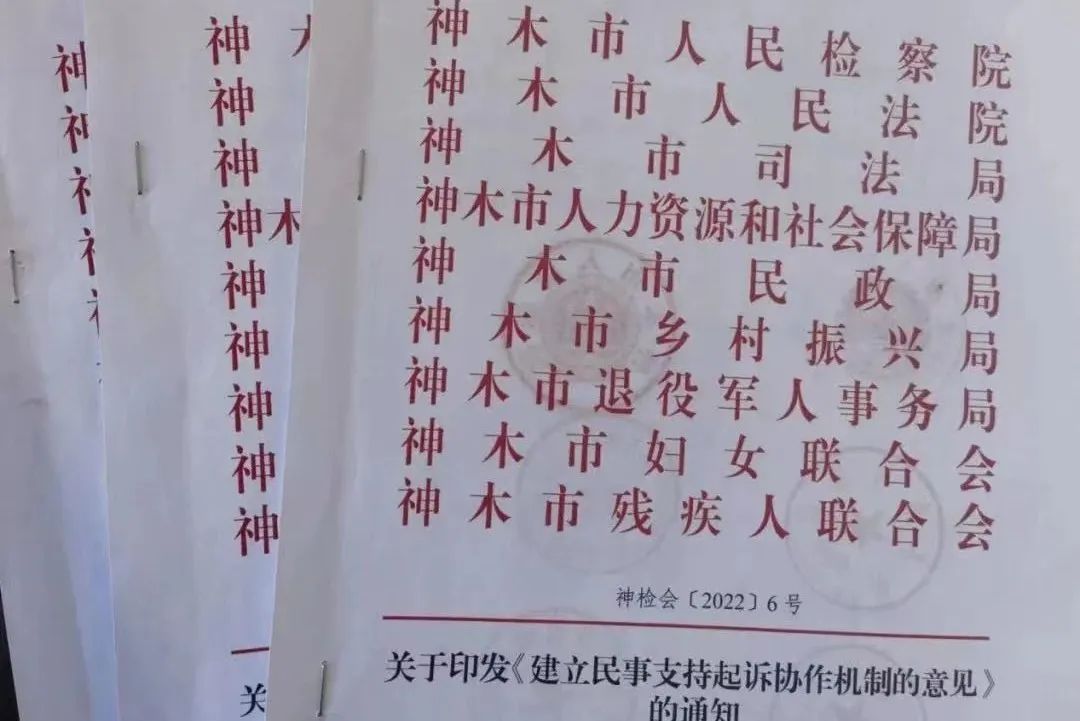 神木市人民检察院
神木市人民法院
神木市司法局
神木市人力资源和社会保障局
神木市民政局
神木市乡村振兴局
神木市退役军人事务局
神木市妇女联合会
神木市残疾人联合会
神检会〔2022〕6号
关于印发《建立民事支持起诉协作机制的意见》
的通知
神
神
神
神木
神
神
神
神
神
关
神
神
神
神